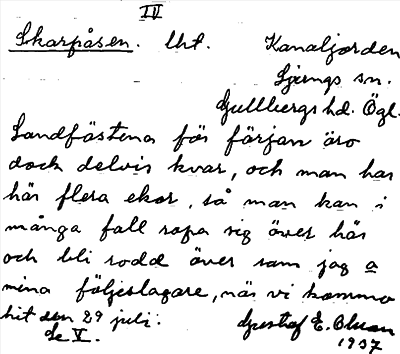 IV
Skarpåsen. Utt. Kanaljorden
Ljungs sn.
Gullbergs hd. Ögl.
Landfästena för färjan äro
dock delvis kvar, och man har
här flera ekor, så man kan i
många fall ropa sig över här
och bli rodd över som jag o
mina följeslagare, när vi kommo
hit den 29 juli.
Se V. Gustaf E. Olsson
1937